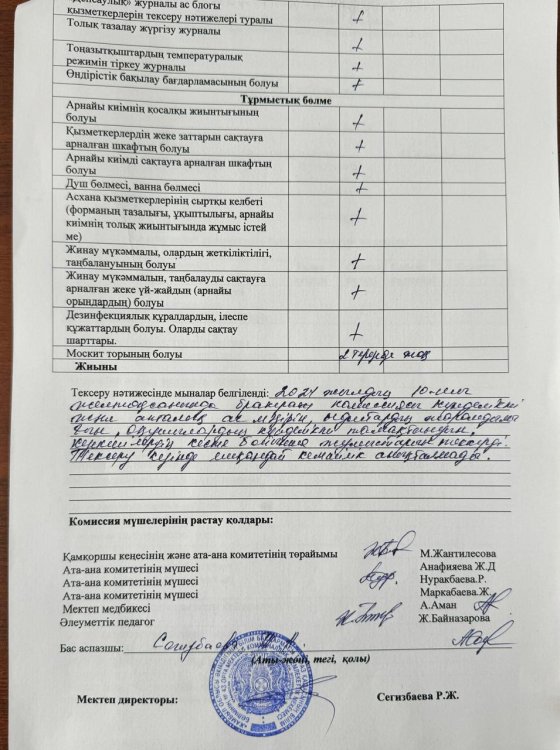 «Денсаулық» журналы ас блогы
қызметкерлерін тексеру нәтижелері туралы +
Толық тазалау жүргізу журналы +
Тоңазытқыштардың температуралық
режимін тіркеу журналы +
Өндірістік бақылау бағдарламасының болуы +
Тұрмыстық бөлме
Арнайы киімнің қосалқы жиынтығының
болуы +
Қызметкерлердің жеке заттарын сақтауға
арналған шкафтың болуы +
Арнайы киімді сақтауға арналған шкафтың
болуы +
Душ бөлмесі, ванна бөлмесі +
Асхана қызметкерлерінің сыртқы келбеті
(форманың тазалығы, ұқыптылығы, арнайы
киімнің толық жиынтығында жұмыс істей
ме) +
Жинау мүкәммалы, олардың жеткіліктілігі,
таңбалануының болуы +
Жинау мүкәммалын, таңбалауды сақтауға
арналған жеке үй-жайдың (арнайы
орындардың) болуы +
Дезинфекциялық құралдардың, ілеспе
құжаттардың болуы. Оларды сақтау
шарттары. +
Москит торының болуы 2 терезеде жоқ
Жиыны
Тексеру нәтижесінде мыналар белгіленді: 2024 жылдың 10-шы
желтоқсанында бракераж комиссиясы күнделікті
ас мәзірін, ыдыстардың
оқушылардың күнделікті тамақтануын,
кесте бойынша жұмыстарын тексерді.
Тексеру кезінде ешқандай кемшілік анықталмады.
Комиссия мүшелерінің растау қолдары:
Қамқоршы кеңесінің және ата-ана комитетінің төрайымы М.Жантилесова
Ата-ана комитетінің мүшесі Анафияева Ж.Д
Ата-ана комитетінің мүшесі Нуракбаева.Р.
Ата-ана комитетінің мүшесі Маркабаева.Ж.
Мектеп медбикесі А.Аман
Әлеуметтік педагог Ж.Байназарова
Бас аспазшы:
(Аты-жөні, тегі, қолы)
Мектеп директоры: Сегизбаева Р.Ж.